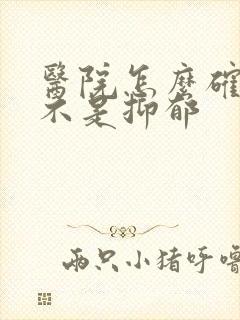 醫院怎麼確
不是抑郁
兩只小猪呼嚕